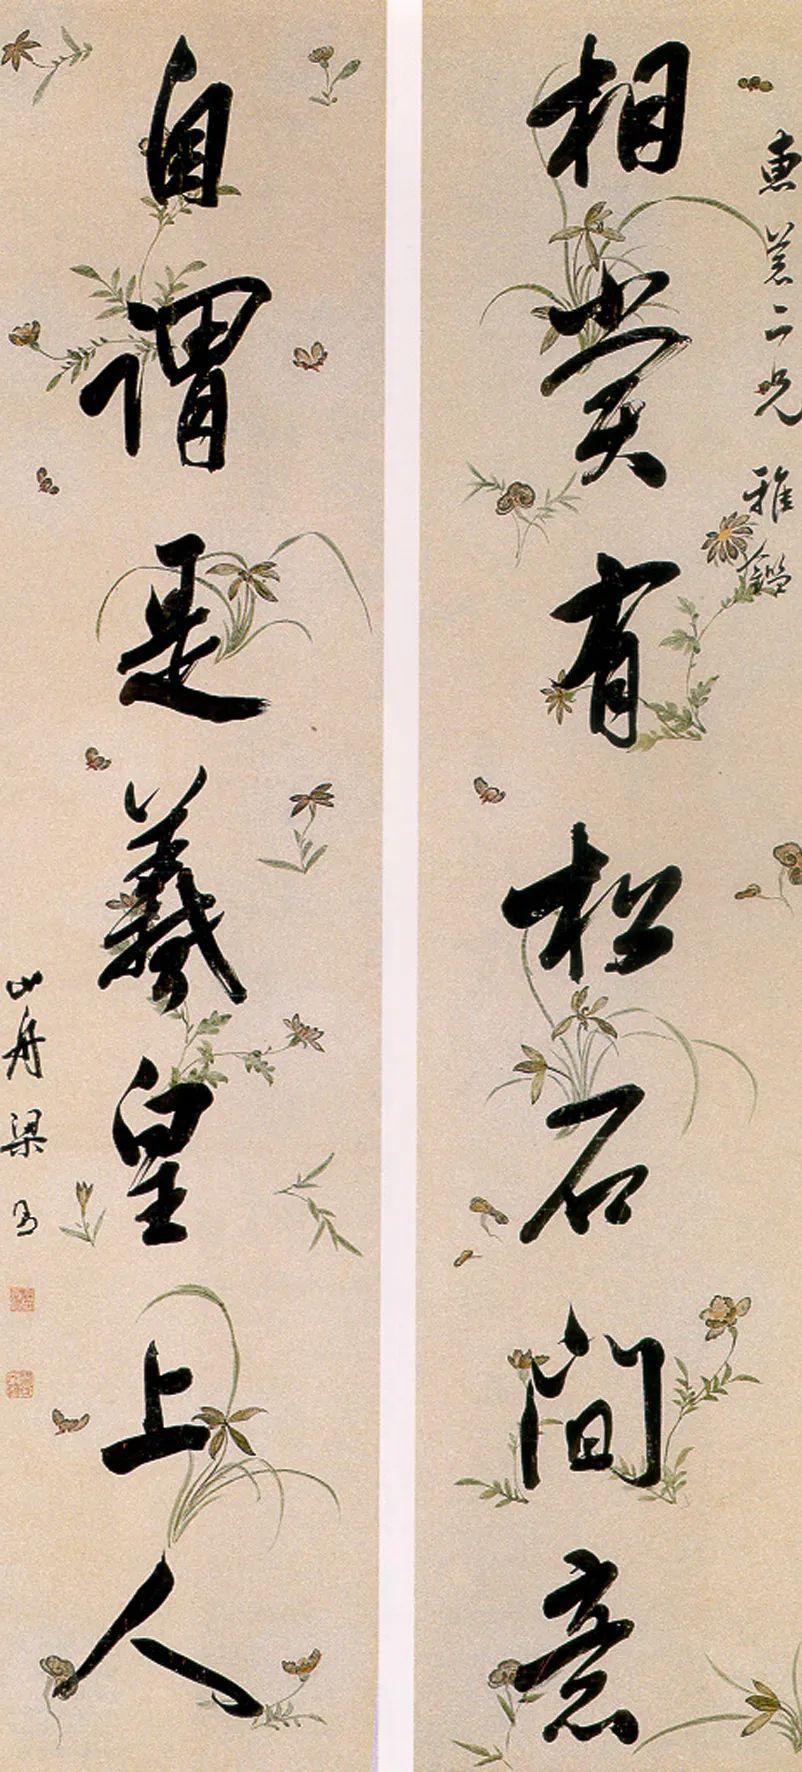 惠㳟二兄雅鑑
相赏有松石间意
自謂是羲皇上人
山舟梁同書